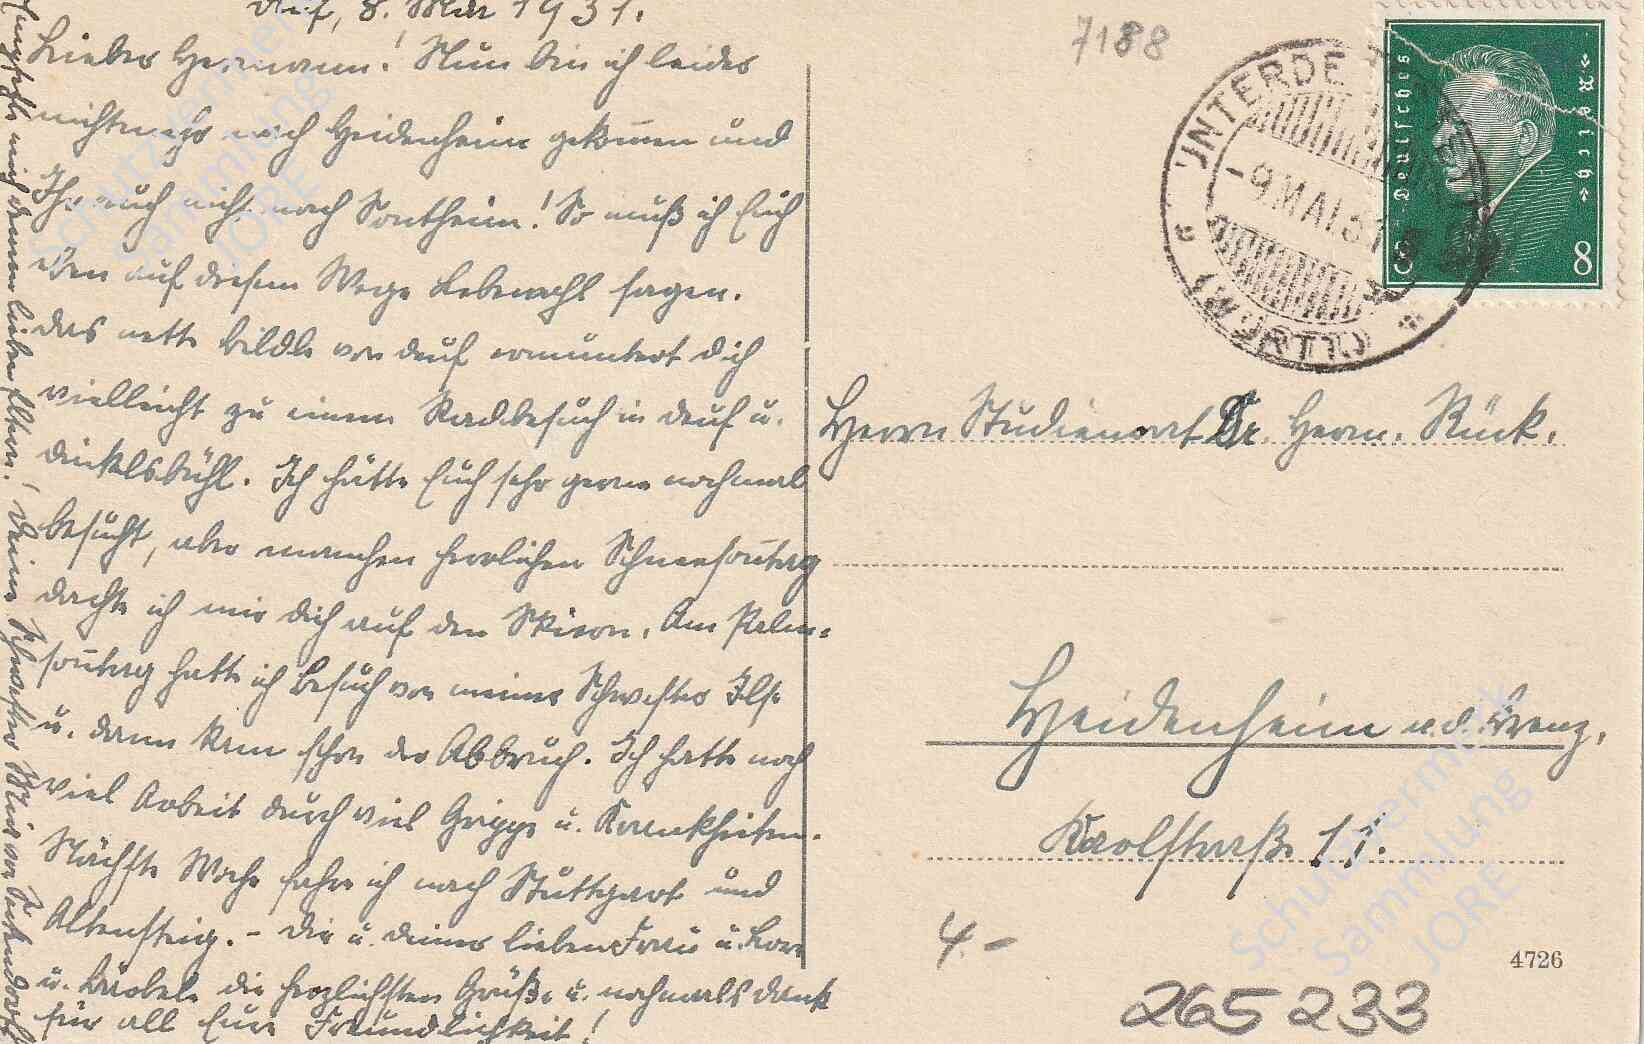 8. Mai 1931.
Lieber Hermann! Nun bin ich leider
nicht mehr nach Heidenheim gekommen und
Ihr auch nicht nach Sontheim! So muß ich Euch
eben auf diesem Wege Lebewohl sagen.
Das nette Bildle von Deuf ermuntert Dich
vielleicht zu einem Radbesuch in Deuf u.
Dinkelsbühl. Ich hätte Euch sehr gerne nochmal
besucht, aber manchen herrlichen Schneesonntag
dachte ich mir Dich auf den Skiern. Am Palm-
sonntag hatte ich Besuch von meiner Schwester Ilse
u. dann kam schon der Abbruch. Ich hatte noch
viel Arbeit durch viel Grippe u. Krankheiten.
Nächste Woche fahre ich nach Stuttgart und
Altensteig. – Dir u. Deiner lieben Frau u. Lore
u. Bärbele die herzlichsten Grüße u. nochmals Dank
für all Eure Freundlichkeit!
mich Deinen lieben Eltern! Deine Schwester
7188
UNTERDE
-9.MAI.31
(WÜRTT)
Deutsches Reich
8 8
Herrn Studienrat Dr. Herm. Rück.
Heidenheim a. d. Brenz,
Karlstraße 11.
4.-
4726
265 233
Schutzvermerk
Sammlung
JORE
Schutzvermerk
Sammlung
JORE